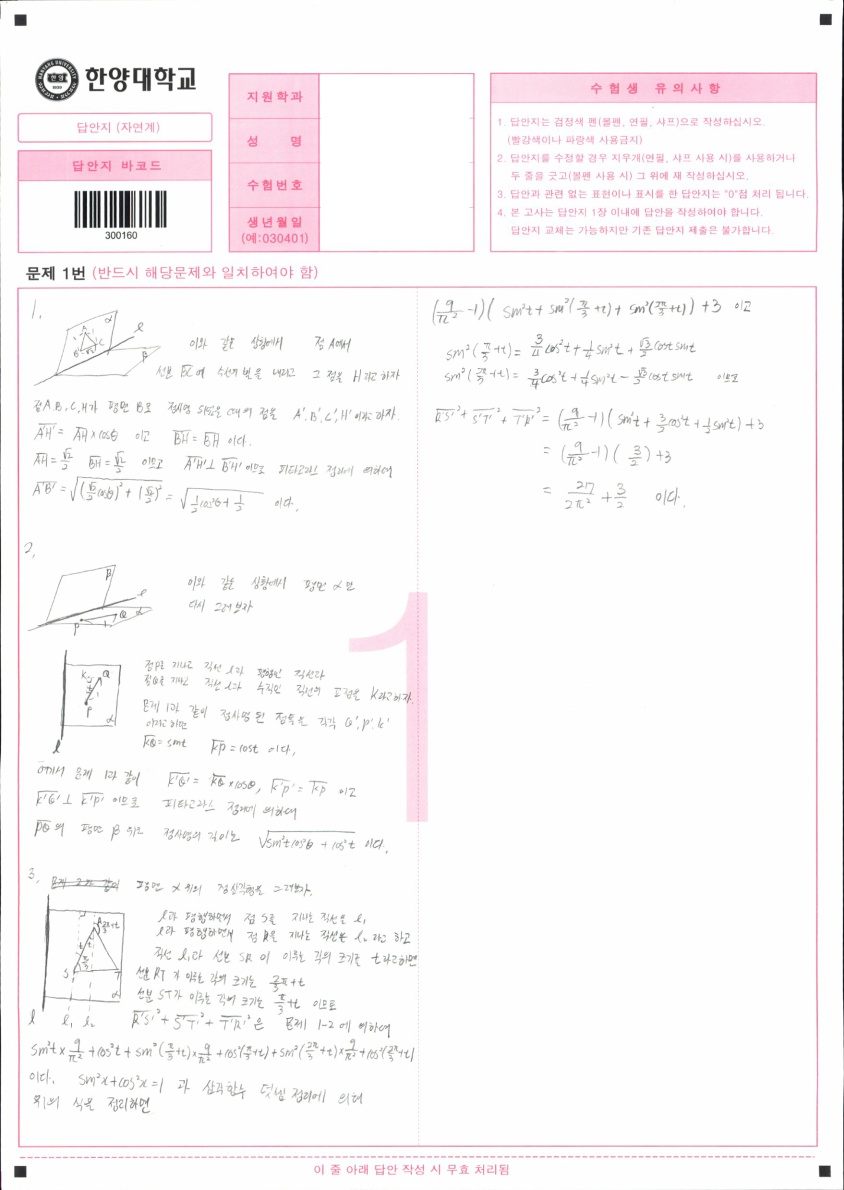 한양대학교
답안지 (자연계)
답안지 바코드
300160
지원학과
성 명
수험번호
생년월일
(예:030401)
수 험 생 유 의 사 항
1. 답안지는 검정색 펜(볼펜, 연필, 샤프)으로 작성하십시오.
(빨강색이나 파랑색 사용금지)
2. 답안지를 수정할 경우 지우개(연필, 샤프 사용 시)를 사용하거나
두 줄을 긋고(볼펜 사용 시) 그 위에 재 작성하십시오.
3. 답안과 관련 없는 표현이나 표시를 한 답안지는 "0"점 처리 됩니다.
4. 본 고사는 답안지 1장 이내에 답안을 작성하여야 합니다.
답안지 교체는 가능하지만 기존 답안지 제출은 불가합니다.
문제 1번 (반드시 해당문제와 일치하여야 함)
1.
이와 같은 상황에서 점 A에서
선분 BC에 수선의 발을 내리고 그 점을 H라고 하자
점 A, B, C, H가 평면 B로 정사영 되었을 때의 점을 A', B', C', H'이라고 하자.
A'H' = AH × cosθ 이고 BH = B'H' 이다.
AH = √2/2 BH = √2/2 이므로 A'H' ⊥ B'H' 이므로 피타고라스 정리에 의하여
A'B' = √((√2/2 cosθ)² + (√2/2)²) = √(1/2 cos²θ + 1/2) 이다.
2.
이와 같은 상황에서 평면 α만
다시 그려보자
점P를 지나고 직선 l과 평행한 직선과
점Q를 지나고 직선 l과 수직인 직선의 교점을 K라고하자.
문제 1과 같이 정사영 된 점들을 각각 Q', P', K'
이라고하면
KQ = sint KP = cost 이다.
여기서 문제 1과 같이 K'Q' = KQ × cosθ, K'P' = KP 이고
K'Q' ⊥ K'P' 이므로 피타고라스 정리에 의하여
PQ의 평면 β 위로 정사영의 길이는 √(sin²t cos²θ + cos²t) 이다.
3. 문제 2와 같이 평면 α 위의 정삼각형을 그려보자.
l과 평행하면서 점 S를 지나는 직선을 l₁
l과 평행하면서 점 R을 지나는 직선을 l₂ 라고 하고
직선 l₁과 선분 SR이 이루는 각의 크기를 t라고하면
선분 RT가 이루는 각의 크기는 2/3π + t
선분 ST가 이루는 각의 크기는 π/3 + t 이므로
R'S'² + S'T'² + T'R'² 은 문제 1-2에 의하여
sin²t × 9/π² + cos²t + sin²(π/3+t) × 9/π² + cos²(π/3+t) + sin²(2π/3+t) × 9/π² + cos²(2π/3+t)
이다. sin²x + cos²x = 1 과 삼각함수 덧셈 정리에 의해
위의 식을 정리하면
(9/π² - 1)(sin²t + sin²(π/3+t) + sin²(2π/3+t)) + 3 이고
sin²(π/3+t) = 3/4 cos²t + 1/4 sin²t + √3/2 cost sint
sin²(2π/3+t) = 3/4 cos²t + 1/4 sin²t - √3/2 cost sint 이므로
R'S'² + S'T'² + T'R'² = (9/π² - 1)(sin²t + 3/2 cos²t + 1/2 sin²t) + 3
= (9/π² - 1)(3/2) + 3
= 27/2π² + 3/2 이다.
이 줄 아래 답안 작성 시 무효 처리됨